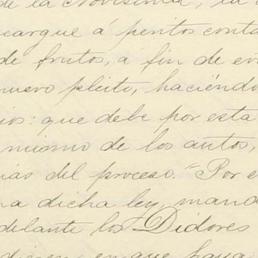 de la Novísima, la
encargue á peritos conta
de frutos, a fin de evi
nuevo pleito, haciéndo
ios: que debe por esta
mismo de los autos,
ias del proceso." Por e
na dicha ley, mand
delante los Oidores
en que haya